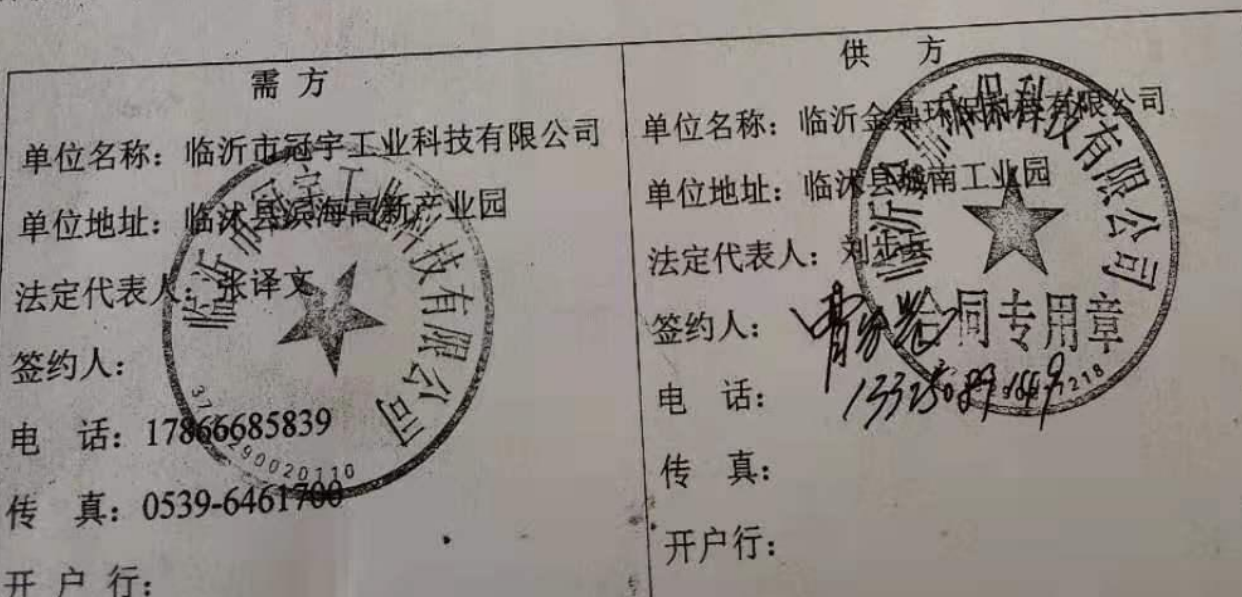 需方
单位名称：临沂市冠宇工业科技有限公司
单位地址：临沭县滨海高新产业园
法定代表人：张译文
签约人：
电 话：17866685839
传 真：0539-6461700
开 户 行：
临沂市冠宇工业科技有限公司
290020110
供 方
单位名称：临沂金鼎环保科技有限公司
单位地址：临沭县城南工业园
法定代表人：刘步兵
签约人：
电 话：
传 真：
开户行：
环保科技有限公司
合同专用章
1218